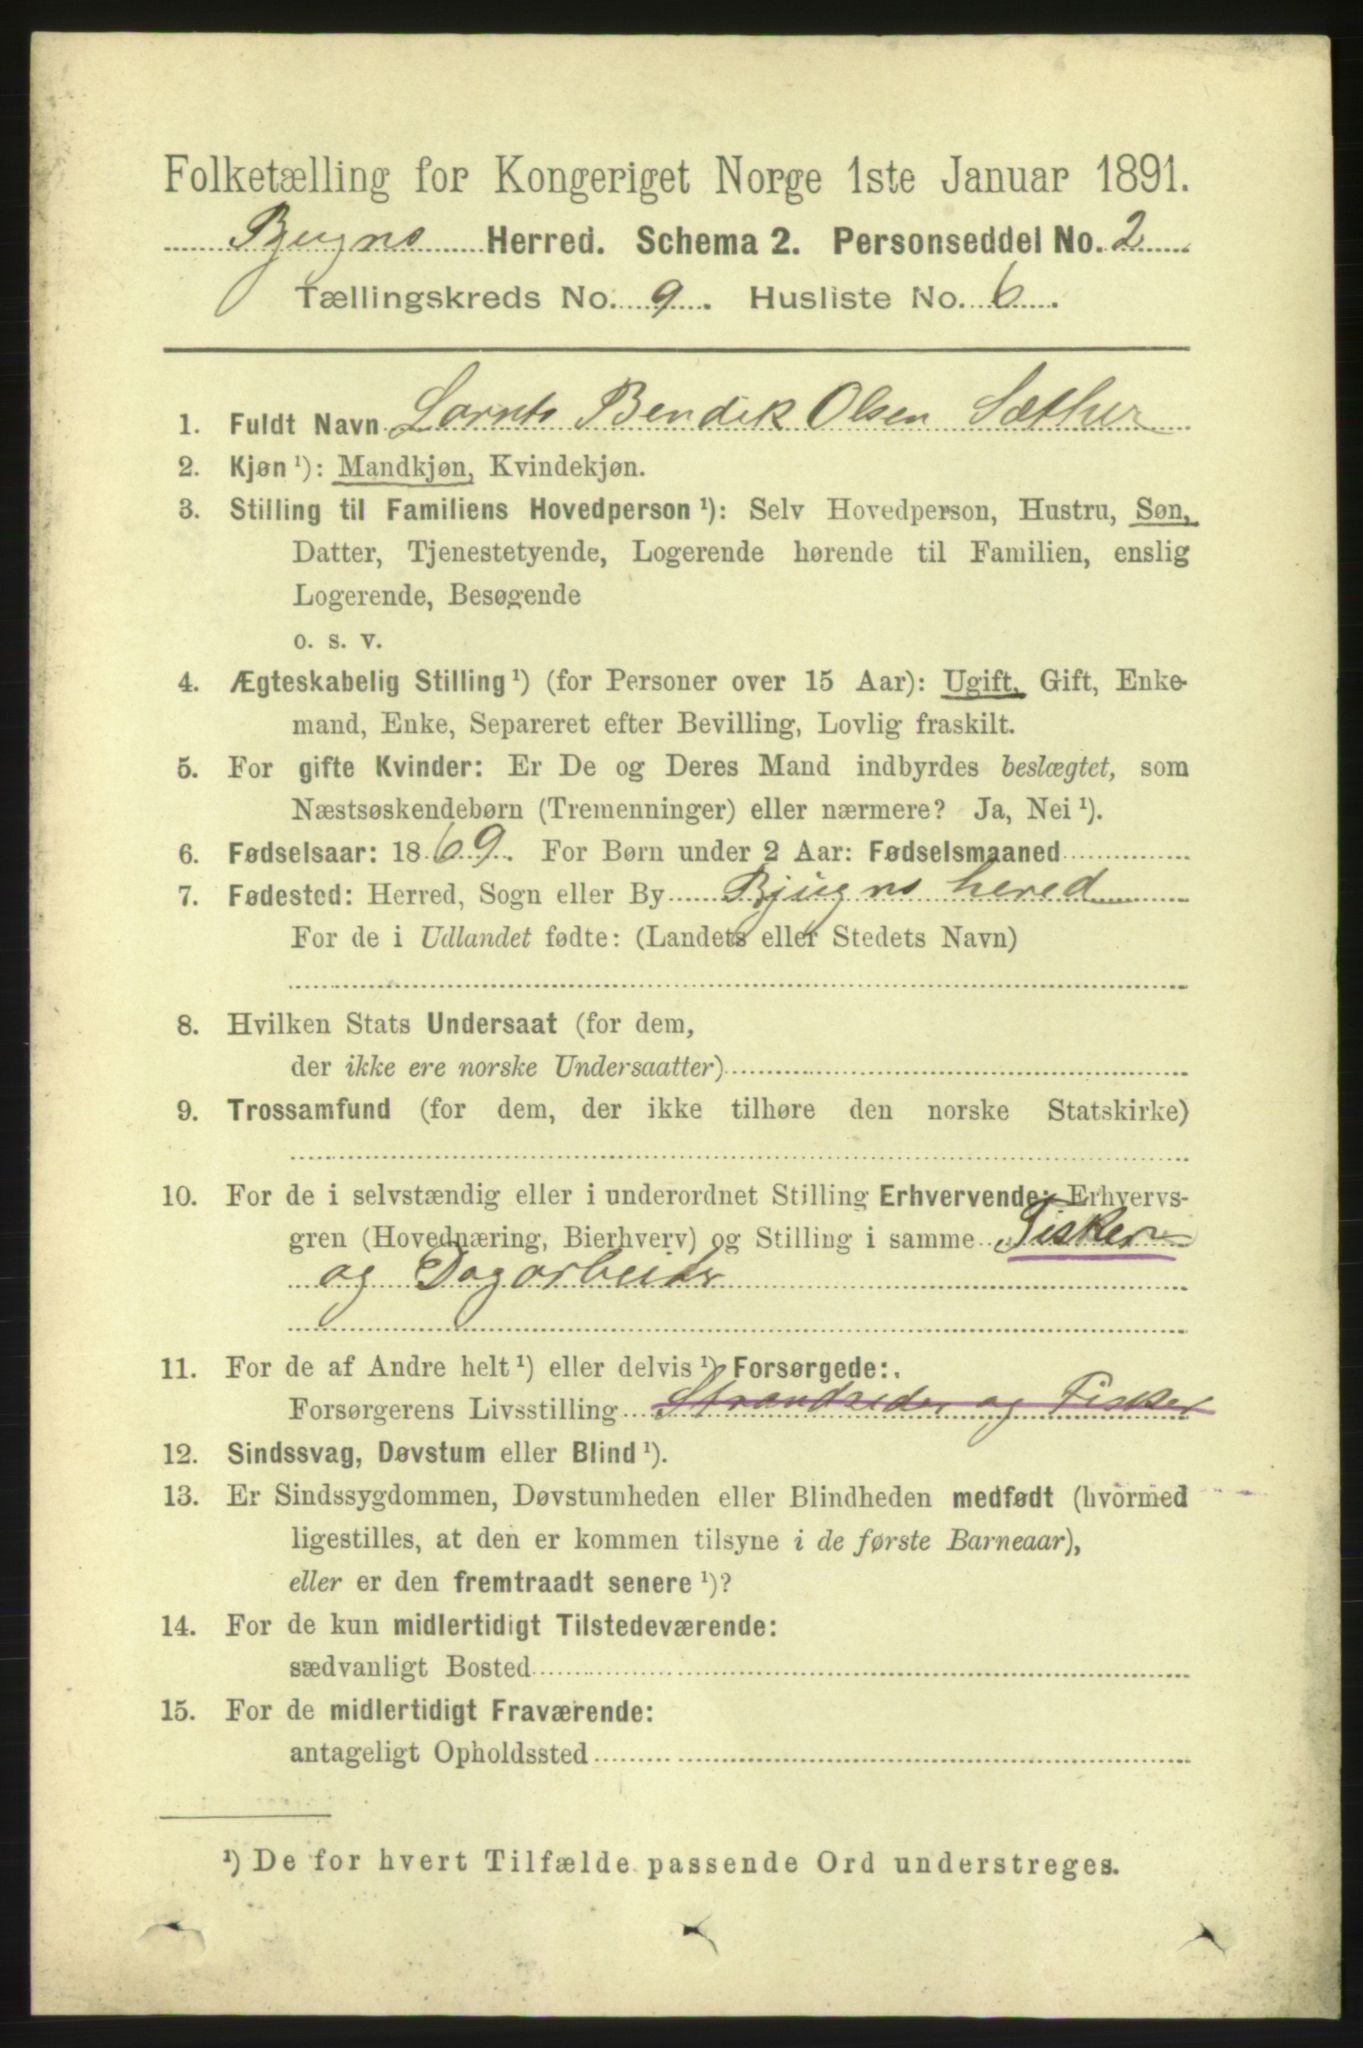 Folketælling for Kongeriget Norge 1ste Januar 1891.
Bjugns Herred. Schema 2. Personseddel No. 2
Tællingskreds No. 9. Husliste No. 6.
1. Fuldt Navn Lornts Bendik Olsen Sæther
2. Kjøn ¹): Mandkjøn, Kvindekjøn.
3. Stilling til Familiens Hovedperson ¹): Selv Hovedperson, Hustru, Søn,
Datter, Tjenestetyende, Logerende hørende til Familien, enslig
Logerende, Besøgende
o. s. v.
4. Ægteskabelig Stilling ¹) (for Personer over 15 Aar): Ugift, Gift, Enke-
mand, Enke, Separeret efter Bevilling, Lovlig fraskilt.
5. For gifte Kvinder: Er De og Deres Mand indbyrdes beslægtet, som
Næstsøskendebørn (Tremenninger) eller nærmere? Ja, Nei ¹).
6. Fødselsaar: 1869. For Børn under 2 Aar: Fødselsmaaned
7. Fødested: Herred, Sogn eller By Bjugns hered
For de i Udlandet fødte: (Landets eller Stedets Navn)
8. Hvilken Stats Undersaat (for dem,
der ikke ere norske Undersaatter)
9. Trossamfund (for dem, der ikke tilhøre den norske Statskirke)
10. For de i selvstændig eller i underordnet Stilling Erhvervende: Erhvervs-
gren (Hovednæring, Bierhverv) og Stilling i samme Fisker
og Dagarbeider
11. For de af Andre helt ¹) eller delvis ¹) Forsørgede:
Forsørgerens Livsstilling Strandsider og Fisker
12. Sindssvag, Døvstum eller Blind ¹).
13. Er Sindssygdommen, Døvstumheden eller Blindheden medfødt (hvormed
ligestilles, at den er kommen tilsyne i de første Barneaar),
eller er den fremtraadt senere ¹)?
14. For de kun midlertidigt Tilstedeværende:
sædvanligt Bosted
15. For de midlertidigt Fraværende:
antageligt Opholdssted
¹) De for hvert Tilfælde passende Ord understreges.